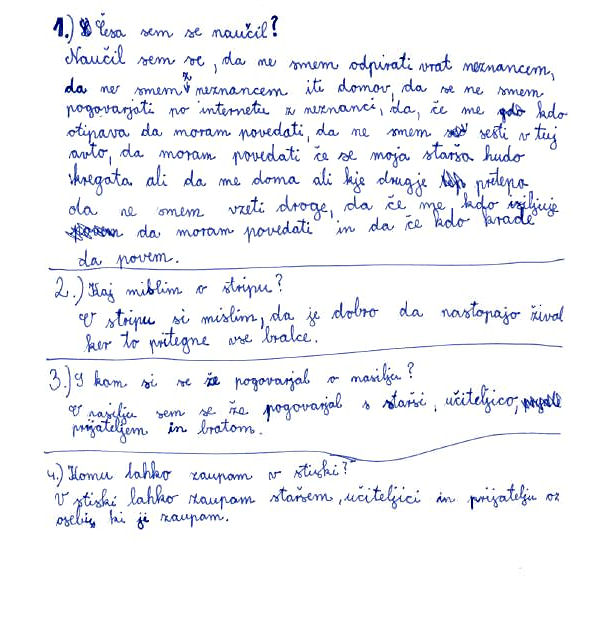 1.) Česa sem se naučil?
Naučil sem se, da ne smem odpirati vrat neznancem,
da ne smem z neznancem iti domov, da se ne smem
pogovarjati po internetu z neznanci, da, če me kdo
otipava da moram povedati, da ne smem sesti v tuj
avto, da moram povedati če se moja starša hudo
kregata ali da me doma ali kje drugje pretepa
da ne smem vzeti droge, da če me kdo izsiljuje
da moram povedati in da če kdo krade
da povem.
2.) Kaj mislim o stripu?
V stripu si mislim, da je dobro da nastopajo žival
ker to pritegne vse bralce.
3.) S kom si se že pogovarjal o nasilju?
V nasilju sem se že pogovarjal s starši, učiteljico,
prijateljem in bratom.
4.) Komu lahko zaupam v stiski?
V stiski lahko zaupam staršem, učiteljici in prijatelju oz
osebi, ki ji zaupam.